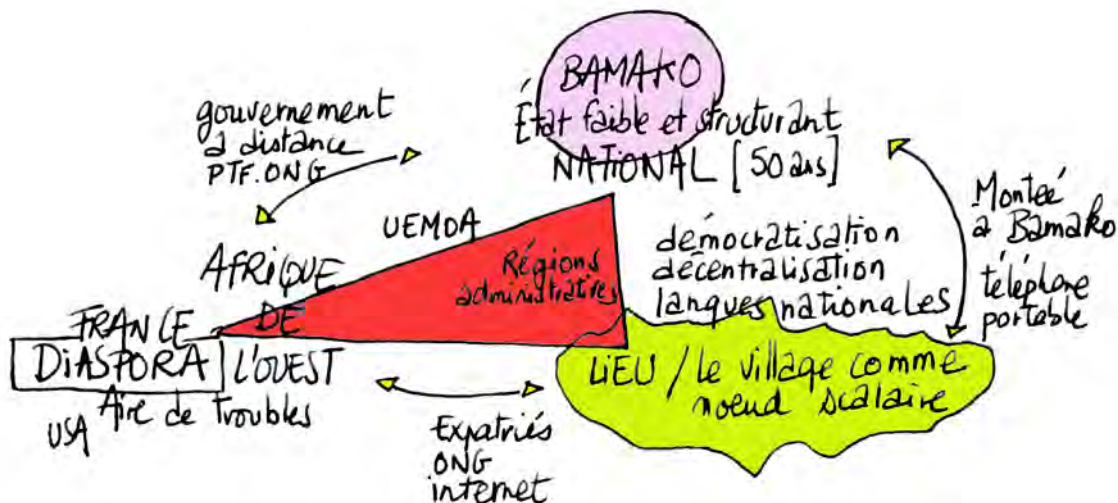 BAMAKO
État faible et structurant
NATIONAL [50 ans]
gouvernement
à distance
PTF. ONG
UEMOA
Régions
administratives
démocratisation
décentralisation
langues nationales
Monteé
à Bamako
téléphone
portable
AFRIQUE
DE
L'OUEST
FRANCE
DIASPORA
USA
Aire de Troubles
Expatriés
ONG
internet
LIEU / le village comme
noeud scalaire